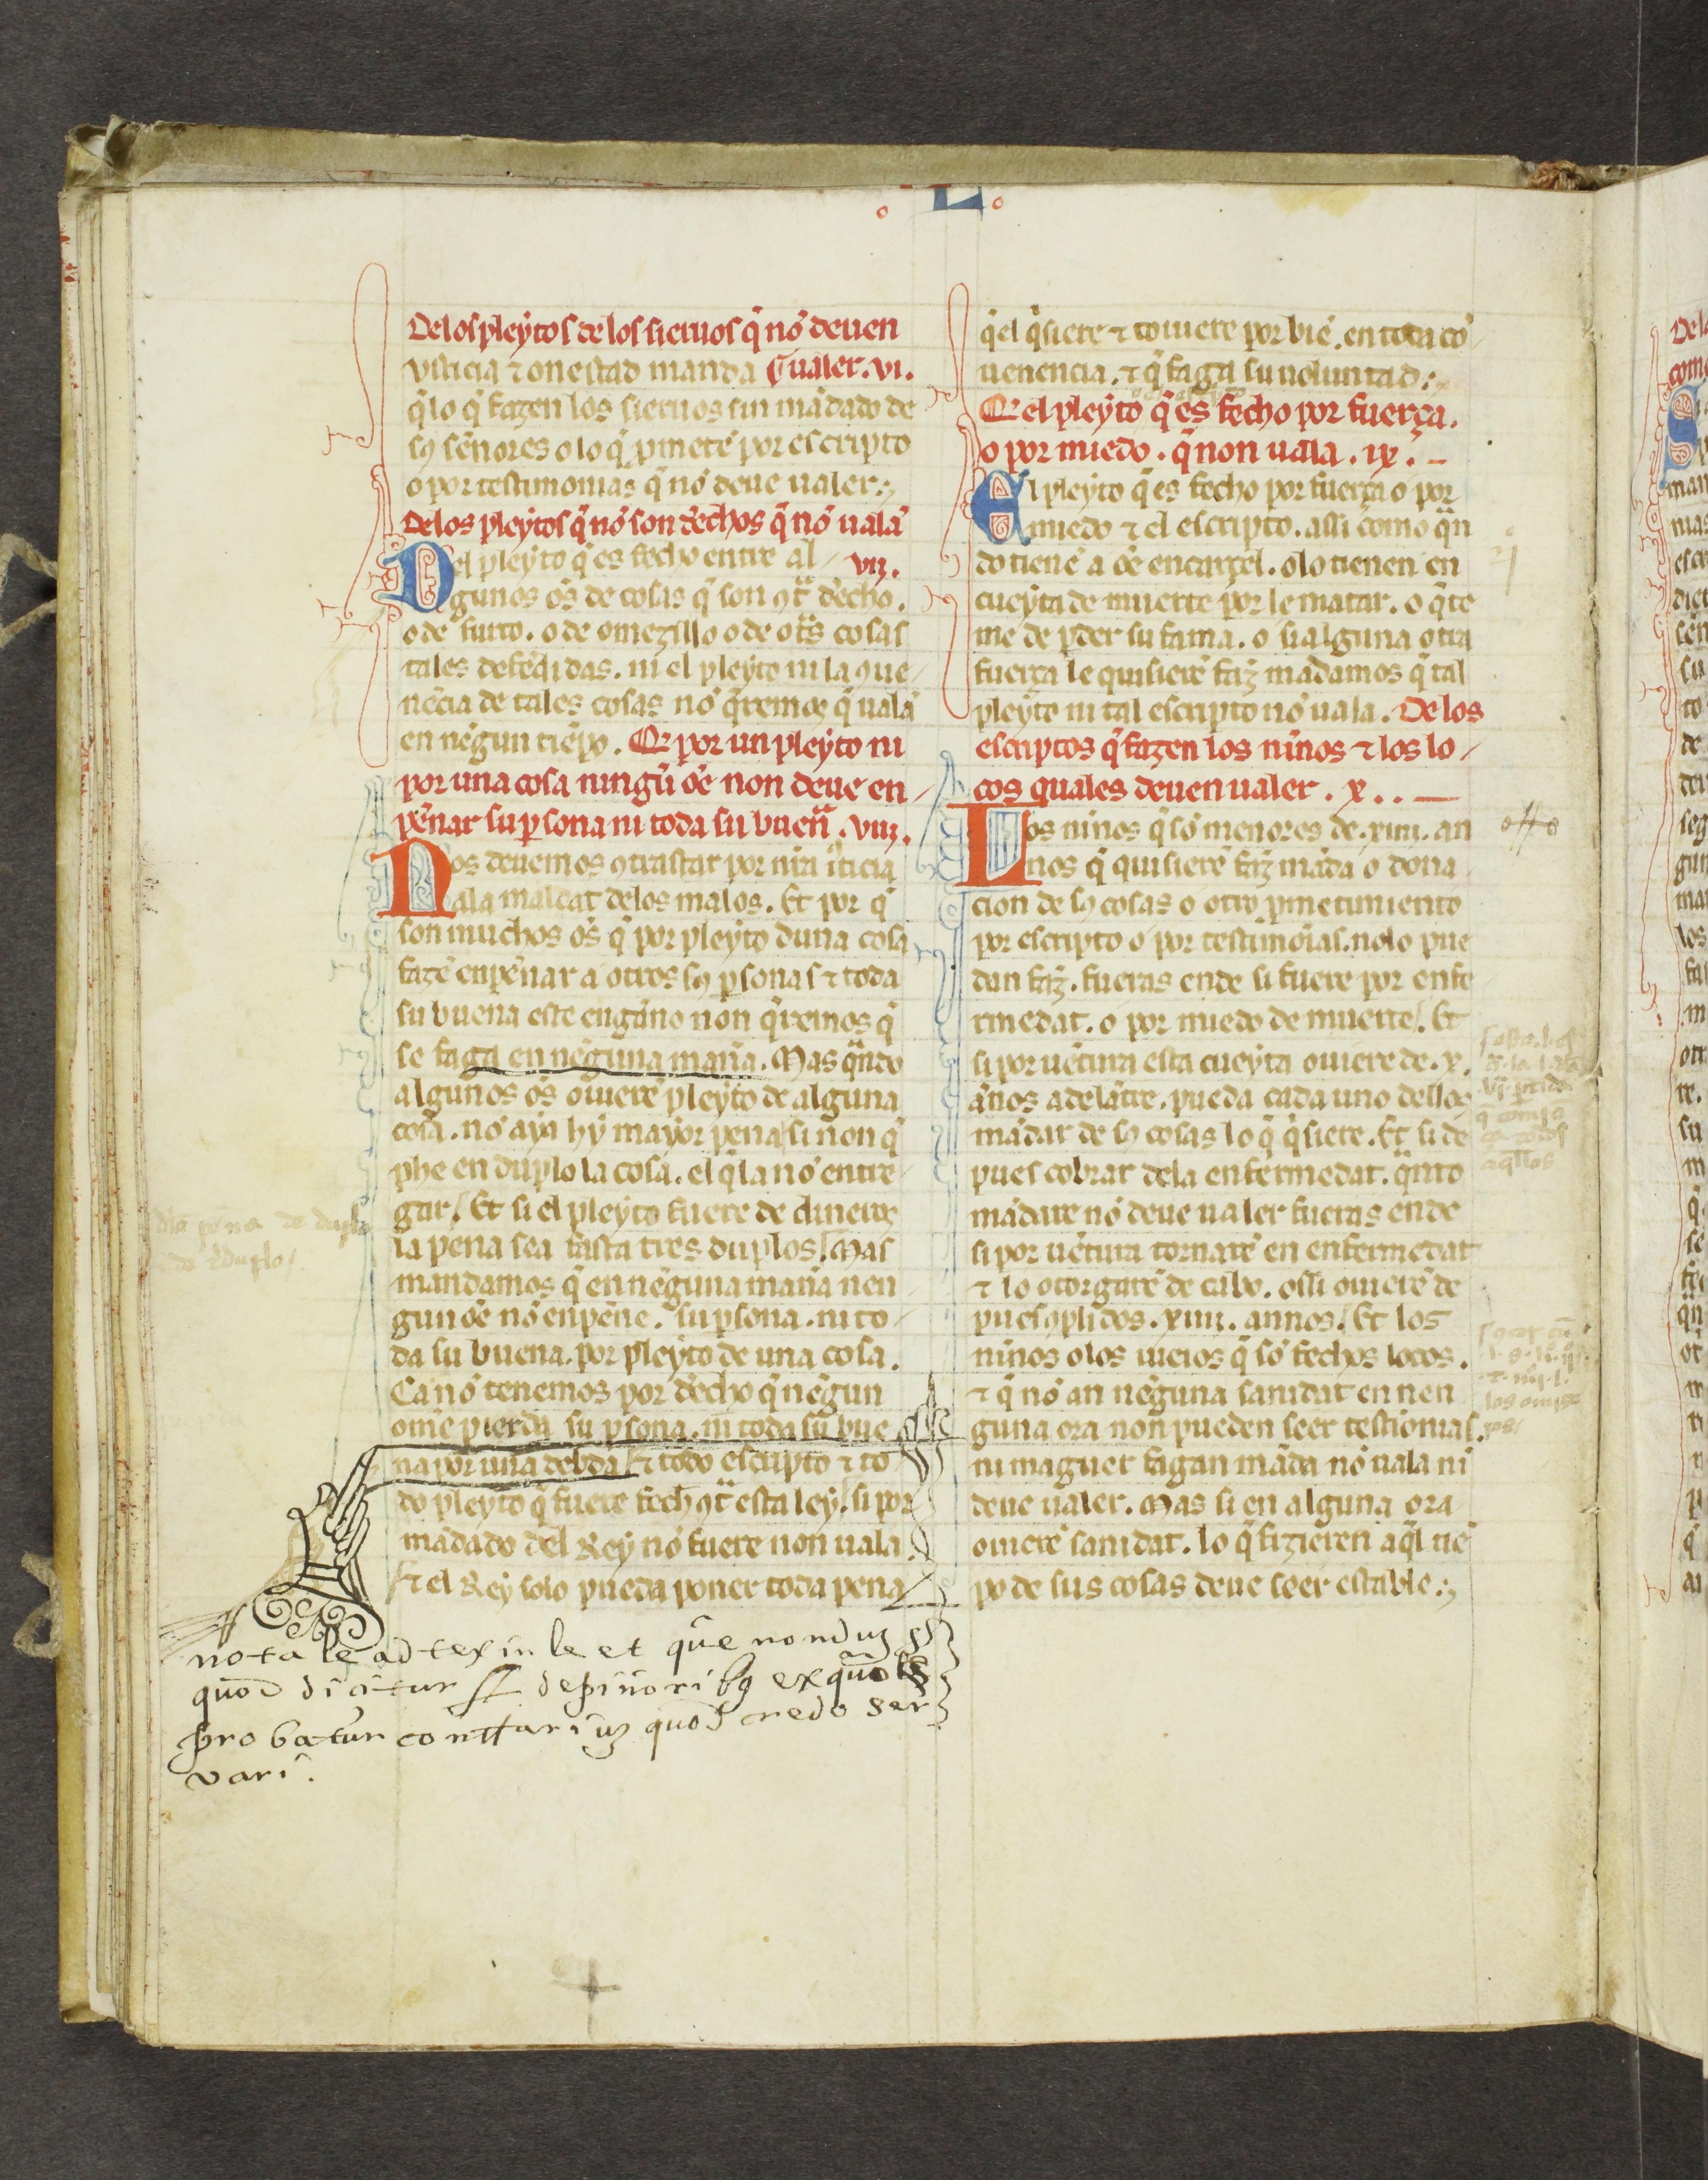 L
Delos pleytos de los sieruos q̃ nõ deuen
usticia ⁊ onestad manda ualer. vi.
q̃ lo q̃ fazen los sieruos sin mãdado de
sꝯ señores o lo q̃ ꝓmetẽ por escripto
o por testimonias q̃ nõ deue ualer.
Delos pleytos q̃ nõ son dechos q̃ nõ ualã
Del pleyto q̃ es fecho entre al vii.
gunos oẽs de cosas q̃ son ꝯtͣ decho.
o de furto. o de omezillo o de otͣs cosas
tales defẽdidas. ni el pleyto ni la ꝯue
nẽcia de tales cosas nõ q̃remos q̃ uala
en nẽgun tiẽpo. Q̃ por un pleyto ni
por una cosa ningũ oẽ non deue en
peñar su ꝑsona ni toda su buenͣ. viii.
Nos deuemos ꝯtrastar por nrã iusticia
a la maldat de los malos. Et por q̃
son muchos oẽs q̃ por pleyto duna cosa
fazẽ enpeñar a otros sꝯ ꝑsonas ⁊ toda
su buena este engãno non q̃remos q̃
se faga en nẽguna mañia. Mas qͣndo
algunos oẽs ouierẽ pleyto de alguna
cosa. nõ aya hy mayor pena si non q̃
phe en duplo la cosa. el q̃ la nõ entre
gar. Et si el pleyto fuere de dineros
la pena sea fasta tres duplos. Mas
mandamos q̃ en nẽguna mañia nen
gun oẽ nõ enpeñe. su ꝑsona. ni to
da su buena. por pleyto de una cosa.
Ca nõ tenemos por decho q̃ nẽgun
ome pierda su ꝑsona. ni toda su bue
na por una debda ⁊ todo escripto ⁊ to
do pleyto q̃ fuere fecho ꝯtͣ esta ley. si por
mãdado del Rey nõ fuere non uala
⁊ el Rey solo pueda poner toda pena
q̃ el q̃siere ⁊ touiere por biẽ. en toda cõ
uenencia. ⁊ q̃ faga su uoluntad.
Q̃ el pleyto q̃ es fecho por fuerça.
o por miedo. q̃ non uala. ix.
El pleyto q̃ es fecho por fuerça o por
miedo ⁊ el escripto. assi como qͣn
do tienẽ a oẽ en carçel. o lo tienen en
cueyta de muerte por le matar. o q̃ te
me de ꝑder su fama. o si alguna otra
fuerça le quisierẽ faz̃ mãdamos q̃ tal
pleyto ni tal escripto nõ uala. De los
escriptos q̃ fazen los niños ⁊ los lo
cos quales deuen ualer. x.
Los niños q̃ sõ menores de. xiiii. an
nos q̃ quisierẽ faz̃ mãda o dona
cion de sꝯ cosas o otro ꝓmetimiento
por escripto o por testimoias. nolo pue
dan faz̃. fueras ende si fuere por enfe
rmedat. o por miedo de muerte. Et
si por uẽtura esta cueyta ouiere de. x.
años adelãtre. pueda cada uno dellos
mãdar de sꝯ cosas lo q̃ q̃siere. Et si de
pues cobrar dela enfermedat. qͣnto
mãdare nõ deue ualer fueras ende
si por uẽtura tornarẽ en enfermedat
⁊ lo otorgarẽ de cabo. o assi ouierẽ de
pues ꝯplidos. xiiii. annos. Et los
niños o los uieios q̃ sõ fechos locos.
⁊ q̃ nõ an nẽguna sanidat en nen
guna ora non pueden seer testionias.
ni maguer fagan mãda nõ uala ni
deue ualer. Mas si en alguna ora
ouierẽ sanidat. lo q̃ fizieren aq̃l tiẽ
po de sus cosas deue seer estable.
nota le ad tex in le et que nondum
quod dicitur ff de pignoribꝯ ex quo
probatur conttarium quod credo ser
vari.